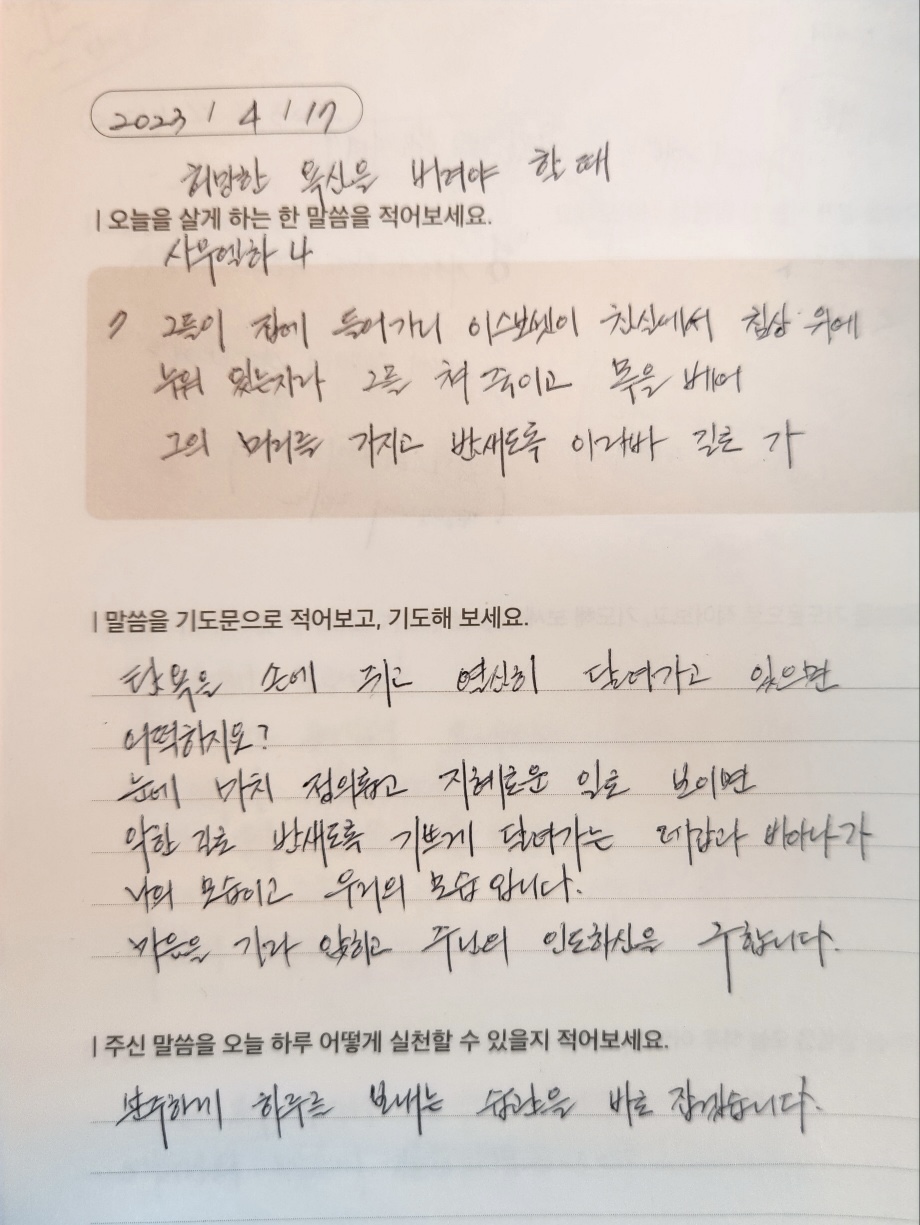 2023 / 4 / 17
허망한 욕심을 버려야 할 때
| 오늘을 살게 하는 한 말씀을 적어보세요.
사무엘하 4
7 그들이 집에 들어가니 이스보셋이 침실에서 침상 위에
누워 있는지라 그를 쳐 죽이고 목을 베어
그의 머리를 가지고 밤새도록 아라바 길로 가
| 말씀을 기도문으로 적어보고, 기도해 보세요.
탐욕을 손에 쥐고 열심히 달려가고 있으면
어떡하지요?
눈에 마치 정의롭고 지혜로운 일로 보이면
악한 길로 밤새도록 기쁘게 달려가는 레갑과 바아나가
나의 모습이고 우리의 모습입니다.
마음을 가라 앉히고 주님의 인도하심을 구합니다.
| 주신 말씀을 오늘 하루 어떻게 실천할 수 있을지 적어보세요.
분주하게 하루를 보내는 습관을 바로 잡겠습니다.